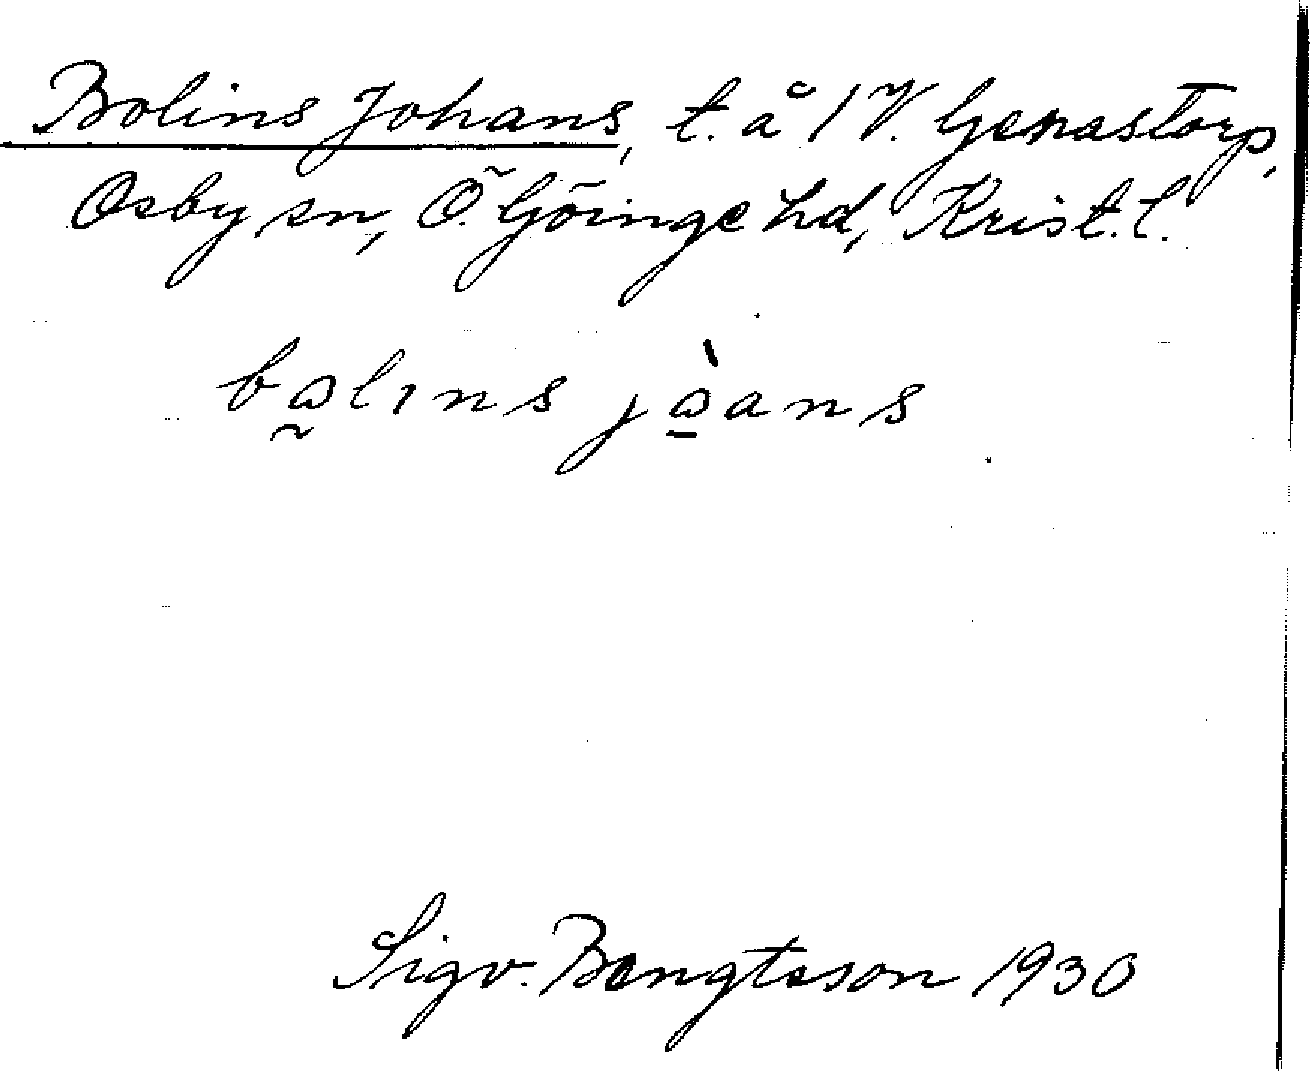 Bolins Johans, t. å 1 V. Genastorp,
Osby sn, Ö. Göinge hd, Krist. l.
bω̰lıns jὼ̱ans
Sigv. Bengtsson 1930